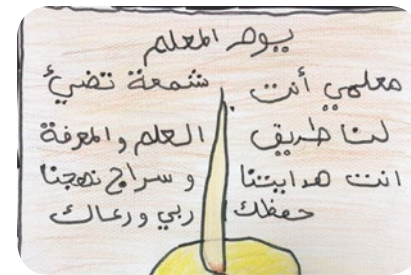 يوم المعلم
معلمي أنت شمعة تضيئ
لنا طريق العلم والمعرفة
انت هدايتنا و سراج نهجنا
حفظك ربي ورعاك